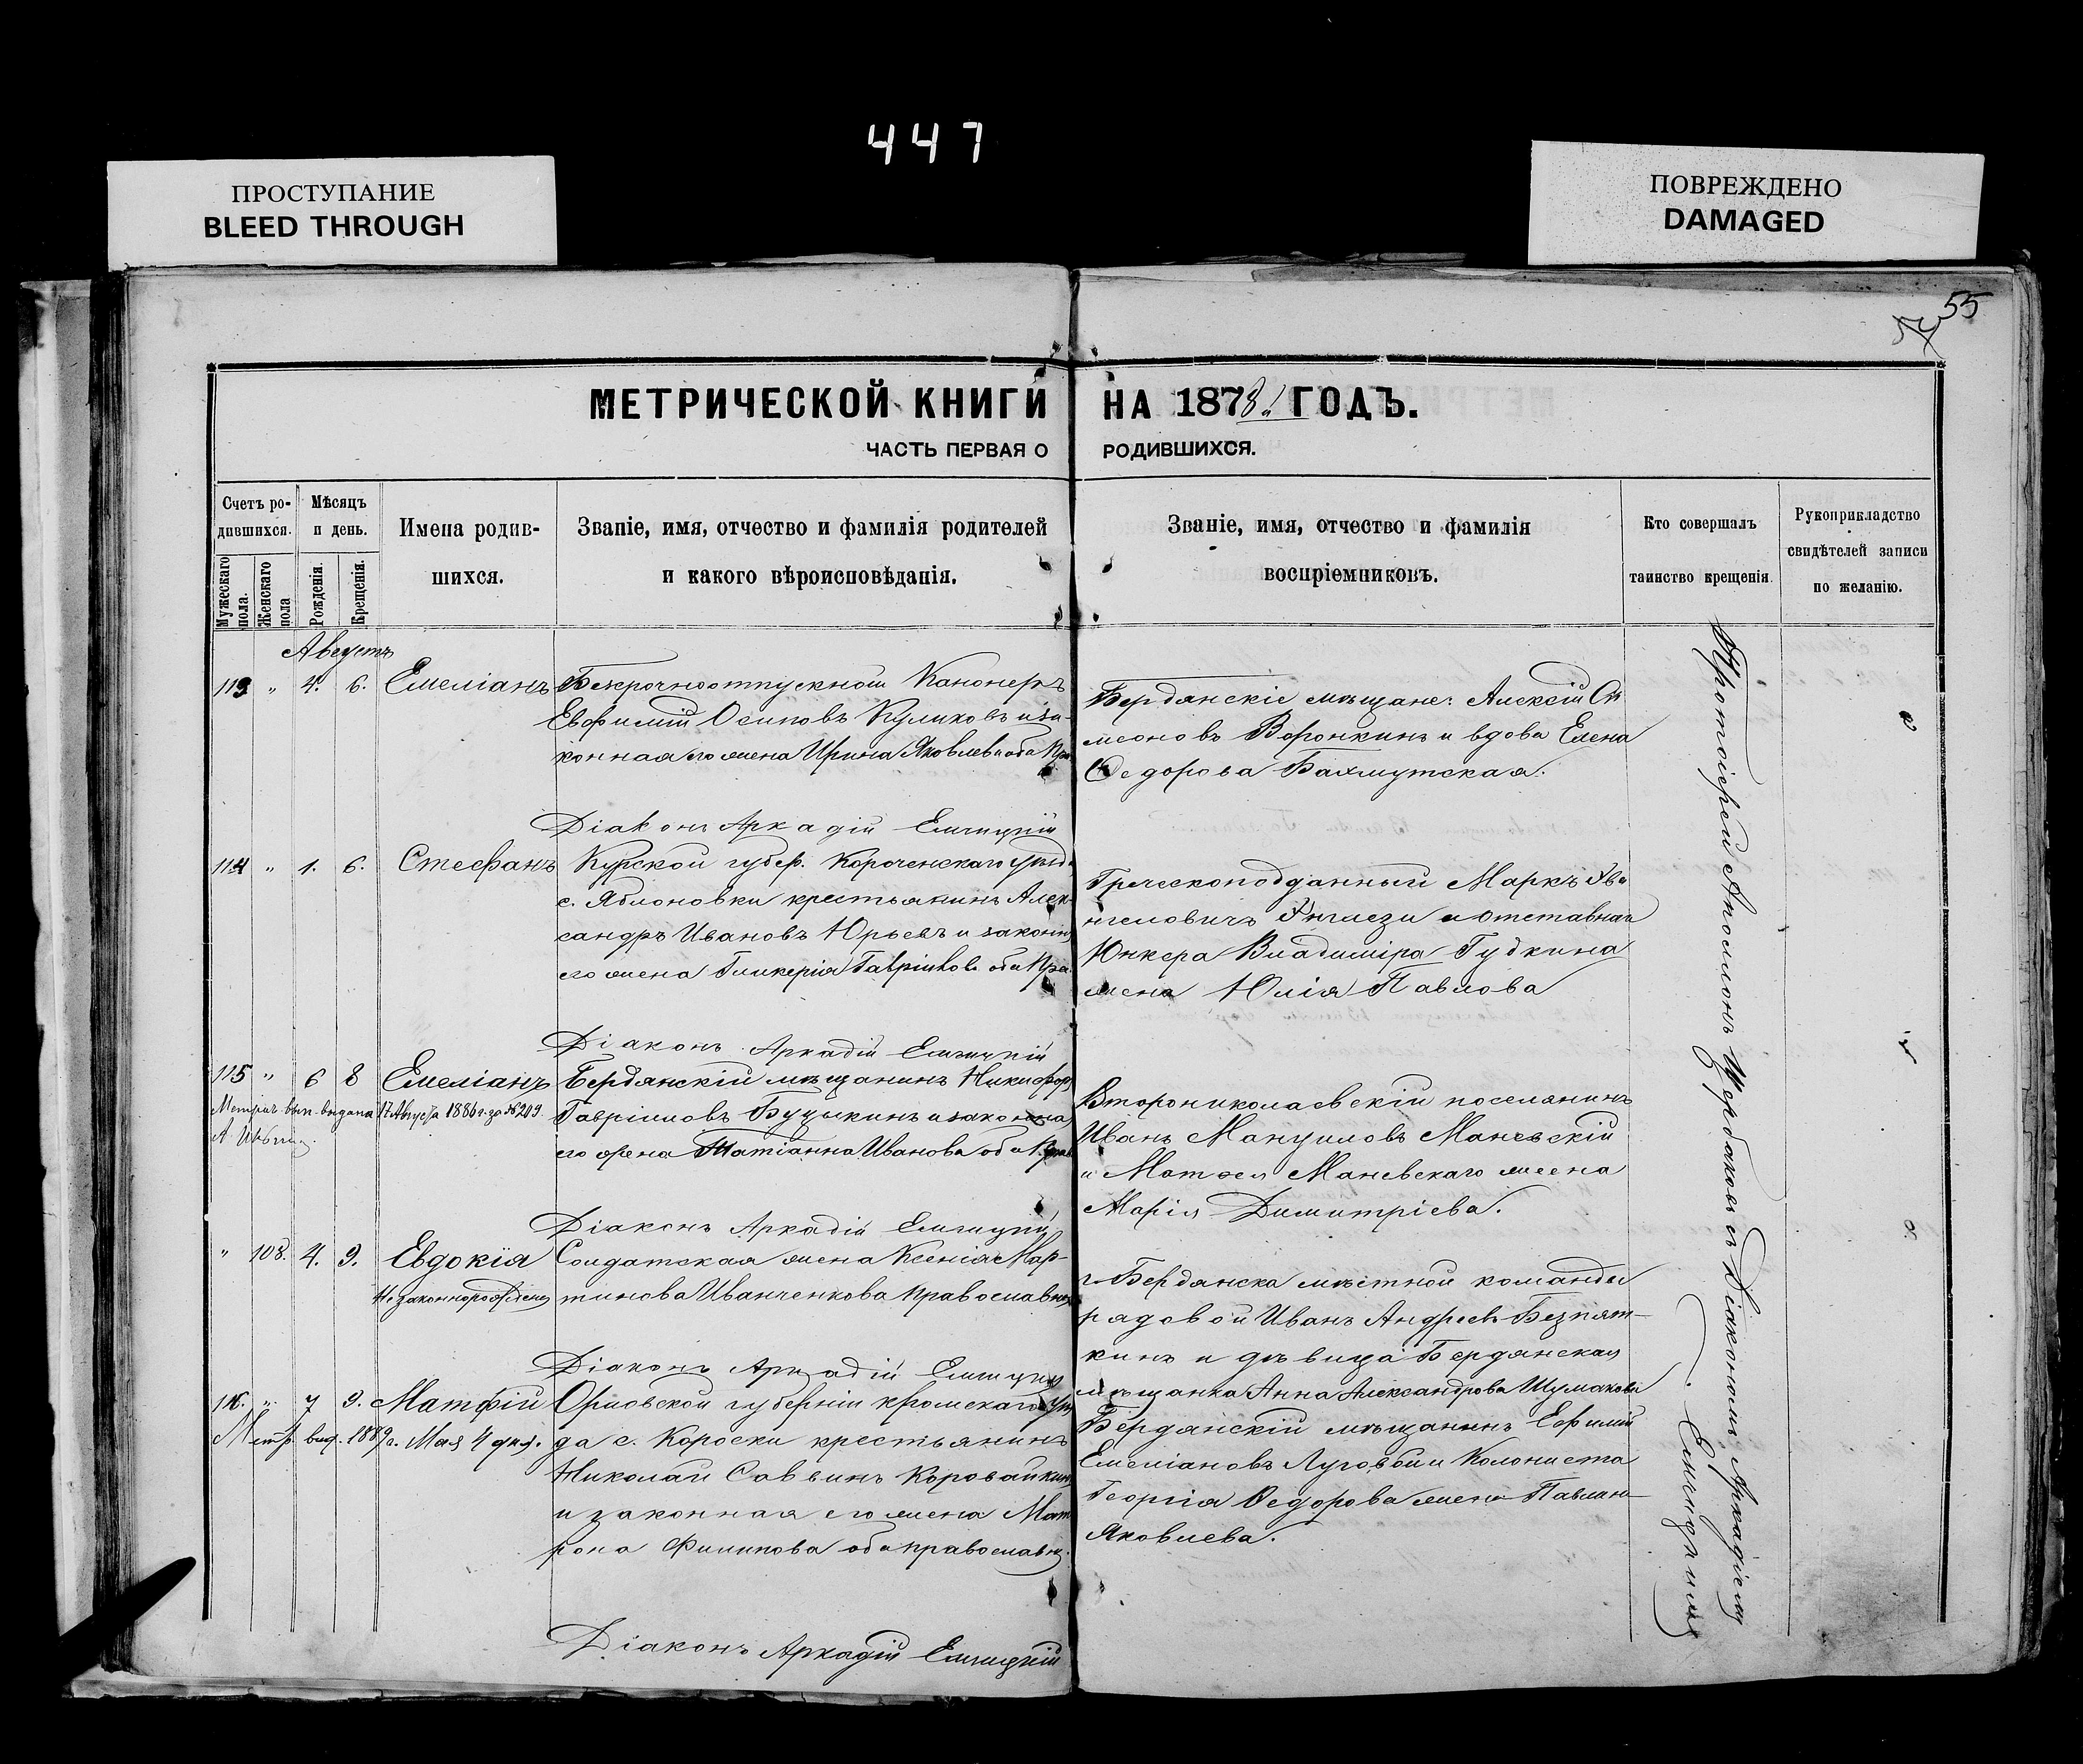 447
ПРОСТУПАНИЕ
BLEED THROUGH
ПОВРЕЖДЕНО
DAMAGED
55
МЕТРИЧЕСКОЙ КНИГИ НА 1878 ГОДЪ.
ЧАСТЬ ПЕРВАЯ О РОДИВШИХСЯ.
Счетъ ро-
дившихся.
Мужескаго пола.
Женскаго пола
Мѣсяцъ
и день.
Рожденія.
Крещенія.
Имена родив-
шихся.
Званіе, имя, отчество и фамилія родителей
и какого вѣроисповѣданія.
Званіе, имя, отчество и фамилія
воспріемниковъ.
Кто совершалъ
таинство крещенія.
Рукоприкладство
свидѣтелей записи
по желанію.
Августъ
113 " 4. 6. Емеліанъ
Безсрочноотпускной Канонеръ
Евфимій Осиповъ Куликовъ и за-
конная его жена Ирина Яковлева оба Пра
Бердянскіе мѣщане: Алексій Си
меоновъ Воронкинъ и вдова Елена
Ѳедорова Бахмутская.
Діаконъ Аркадій
114 " 1. 6. Стефанъ
Курской губер. Короченскаго уѣзда
с. Яблоновки крестьянинъ Алек
сандръ Ивановъ Юрьевъ и законн
его жена Гликерія оба Пра
Греческоподданный Маркъ
и отставнаго
Юнкера Владиміра Гудкина
жена Юлія Павлова
Діаконъ Аркадій
115 " 6 8 Емеліанъ
Метрич. вып. выдана 17 Августа 1886 г. за № 209.
Бердянскій мѣщанинъ Никифоръ
Гавріиловъ и законная
его жена Татіанна Иванова оба Прав
Второниколаевскій поселянинъ
Иванъ Мануиловъ Маневскій
и Матѳея Маневскаго жена
Марія Димитріева.
Діаконъ Аркадій
" 108. 4. 9. Евдокія
Незаконнорожден
Солдатская жена Ксенія Мар-
тинова Иванченкова Православн
г. Бердянска мѣстной команды
рядовой Иванъ Андреевъ Безпят-
кинъ и дѣвица Бердянская
мѣщанка Анна Александрова Шумакова
Діаконъ Аркадій
116. " 7 9. Матфій
Метр. выд. 1889 г. Мая 4 дня.
Орловской губерніи Кромскаго уѣз
да с. Короски крестьянинъ
Николай Саввинъ Коровайкин
и законная его жена Мат
рона Филипова оба православн.
Бердянскій мѣщанинъ Ефимій
Емеліановъ Луговой и Колониста
Георгія Ѳедорова жена
Яковлева.
Діаконъ Аркадій
Протоіерей Аполлонъ Щербаковъ съ Діакономъ Аркадіемъ